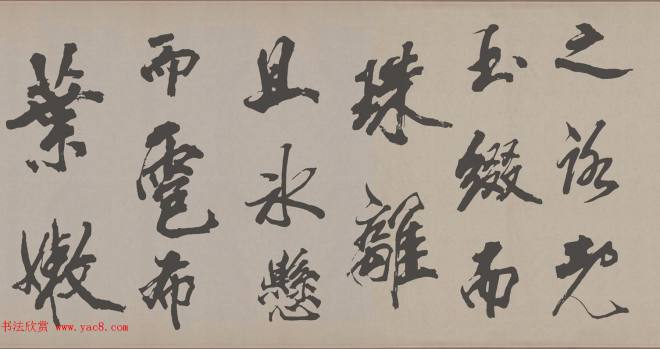 之
玉綴而
珠離
且氷懸
而雹布
葉嫩
书法欣赏 www.yac8.com